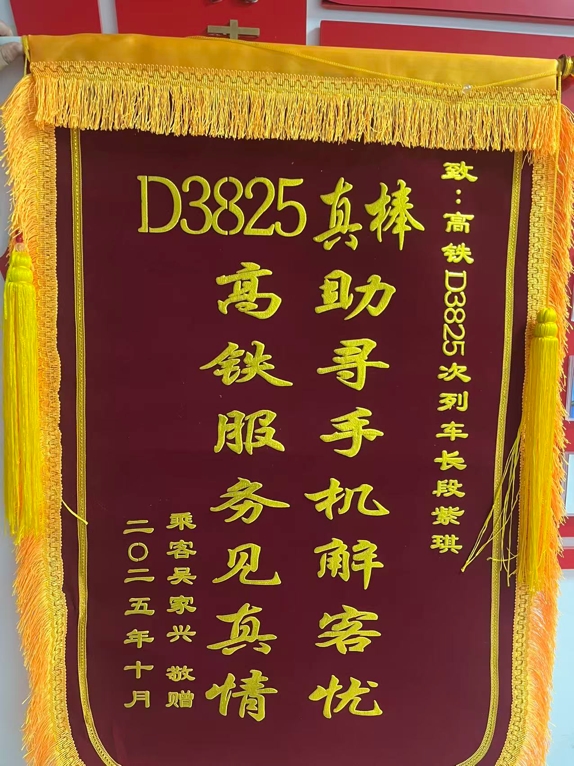 致：高铁D3825次列车长段紫琪
D3825真棒
助寻手机解客忧
高铁服务见真情
乘客吴家兴 敬赠
二〇二五年十月